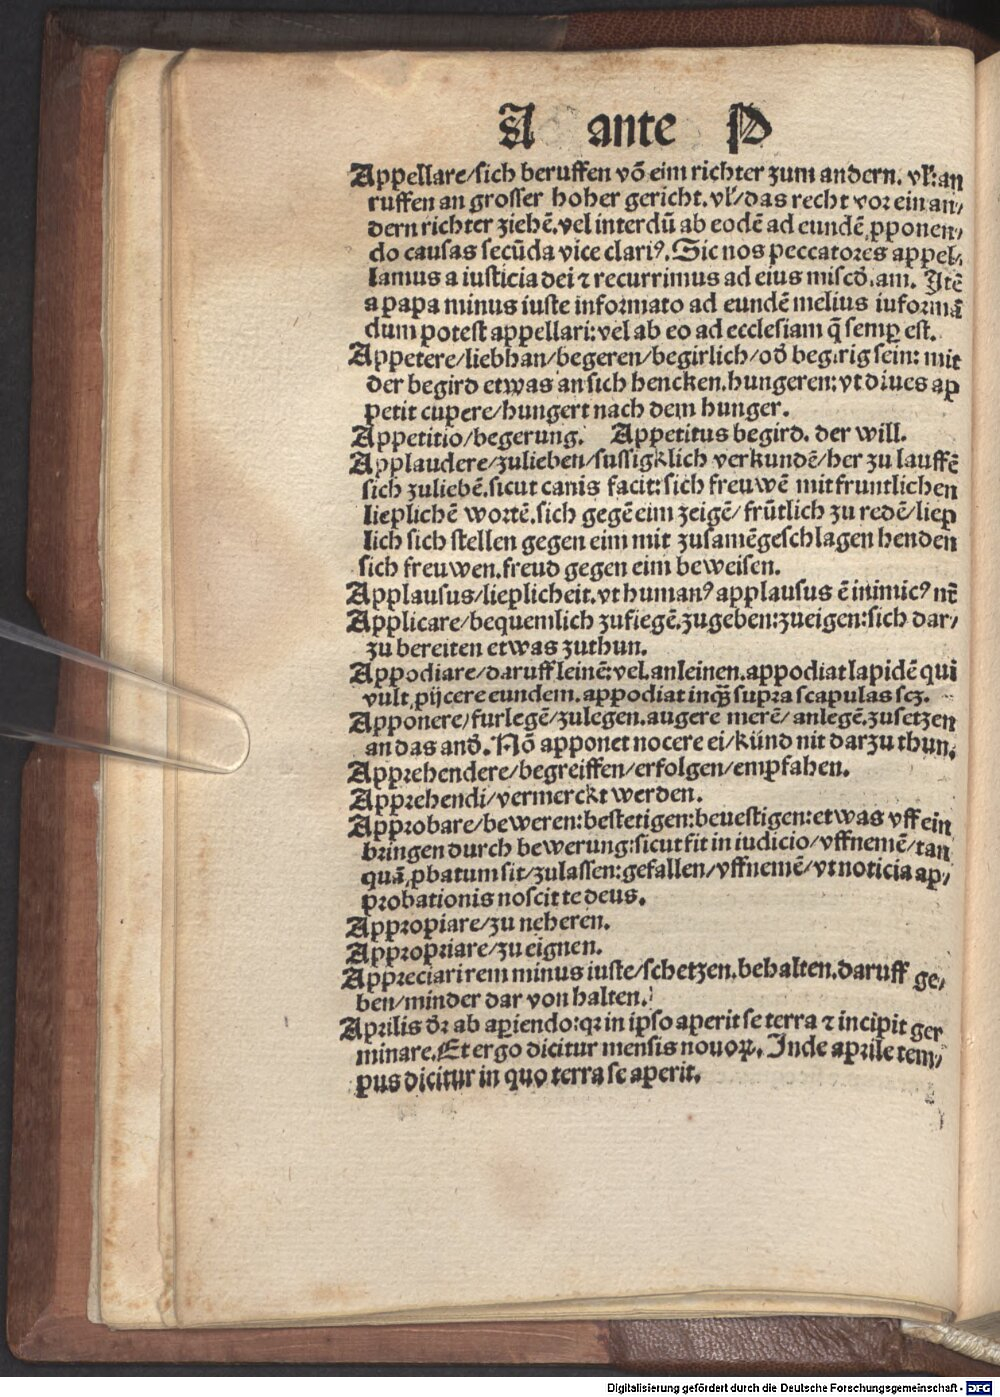 A ante P
Appellare/sich beruffen võ eim richter zum andern. vl̕:an
ruffen an grosser hoher gericht. vl̕/das recht vor ein an/
dern richter ziehẽ.vel interdũ ab eodẽ ad eundẽ ꝓponen/
do causas secũda vice clariꝰ. Sic nos peccatores appel/
lamus a iusticia dei ⁊ recurrimus ad eius miscd̕.am. Itẽ
a papa minus iuste informato ad eundẽ melius iuformã
dum potest appellari:vel ab eo ad ecclesiam q̃ semꝑ est.
Appetere/liebhan/begeren/begirlich/od̕ begirig sein: mit
der begird etwas an sich hencken.hungeren:vt diues ap
petit cupere/hungert nach dem hunger.
Appetitio/begerung. Appetitus begird. der will.
Applaudere/zulieben/sussigklich verkundẽ/her zu lauffẽ
sich zuliebẽ.sicut canis facit:sich freuwẽ mit fruntlichen
lieplichẽ wortẽ.sich gegẽ eim zeigẽ/frũtlich zu redẽ/liep
lich sich stellen gegen eim mit zusamẽgeschlagen henden
sich freuwen.freud gegen eim beweisen.
Applausus/lieplicheit.vt humanꝰ applausus ẽ inimicꝰ nr̃
Applicare/bequemlich zufiegẽ.zugeben:zueigen:sich dar/
zu bereiten etwas zuthun.
Appodiare/daruff leinẽ:vel.anleinen.appodiat lapidẽ qui
vult ꝓijcere eundem.appodiat inqꝫ supra scapulas scz.
Apponere/furlegẽ/zulegen.augere merẽ/anlegẽ.zusetzen
an das and̕.Nõ apponet nocere ei/künd nit darzu thun.
Apprehendere/begreiffen/erfolgen/empfahen.
Apprehendi/vermerckt werden.
Approbare/beweren:bestetigen:beuestigen:etwas vff ein
bringen durch bewerung:sicut fit in iudicio/vffnemẽ/tan
quã ꝓbatum sit/zulassen:gefallen/vffnemẽ/vt noticia ap/
probationis noscit te deus.
Appropiare/zu neheren.
Appropriare/zu eignen.
Appreciari rem minus iuste/schetzen.behalten.daruff ge/
ben/minder dar von halten.
Aprilis dr̃ ab apiendo:qr in ipso aperit se terra ⁊ incipit ger
minare.Et ergo dicitur mensis nouoꝝ. Inde aprile tem/
pus dicitur in quo terra se aperit.
Digitalisierung gefördert durch die Deutsche Forschungsgemeinschaft - DFG